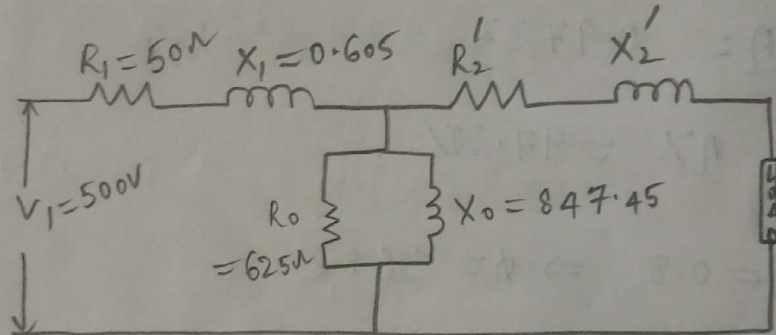 R₁ = 50Ω X₁ = 0.605 R₂' X₂'
V₁ = 500V
R₀ = 625Ω
X₀ = 847.45